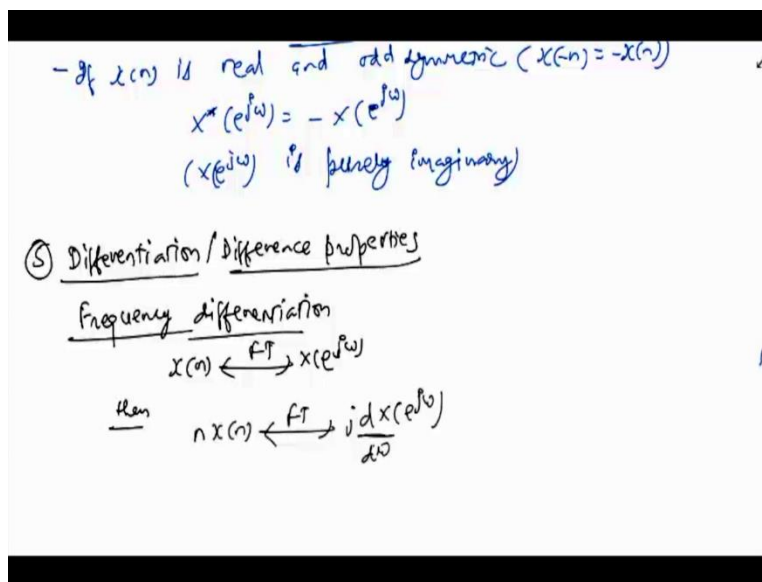 - If x(n) is real and odd symmetric (x(-n) = -x(n))
X*(e^jω) = - X(e^jω)
(X(e^jω) is purely imaginary)
⑤ Differentiation / Difference properties
Frequency differentiation
x(n) ←FT→ X(e^jω)
then n x(n) ←FT→ j dX(e^jω)
dω